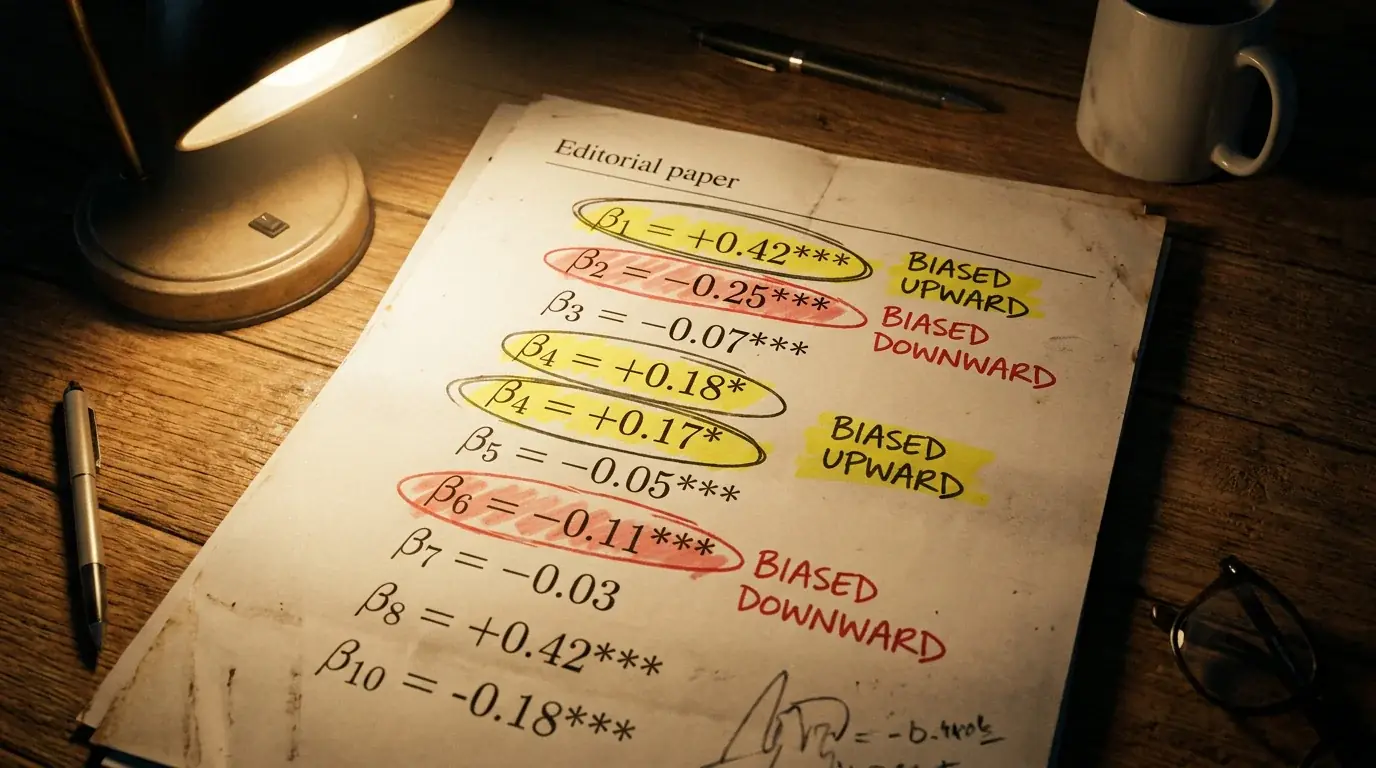 Editorial paper
β₁ = +0.42***
BIASED
UPWARD
β₂ = −0.25***
BIASED
DOWNWARD
β₃ = −0.07***
β₄ = +0.18*
β₄ = +0.17*
BIASED
UPWARD
β₅ = −0.05***
β₆ = −0.11***
BIASED
DOWNWARD
β₇ = −0.03
β₈ = +0.42***
β₁₀ = -0.18***